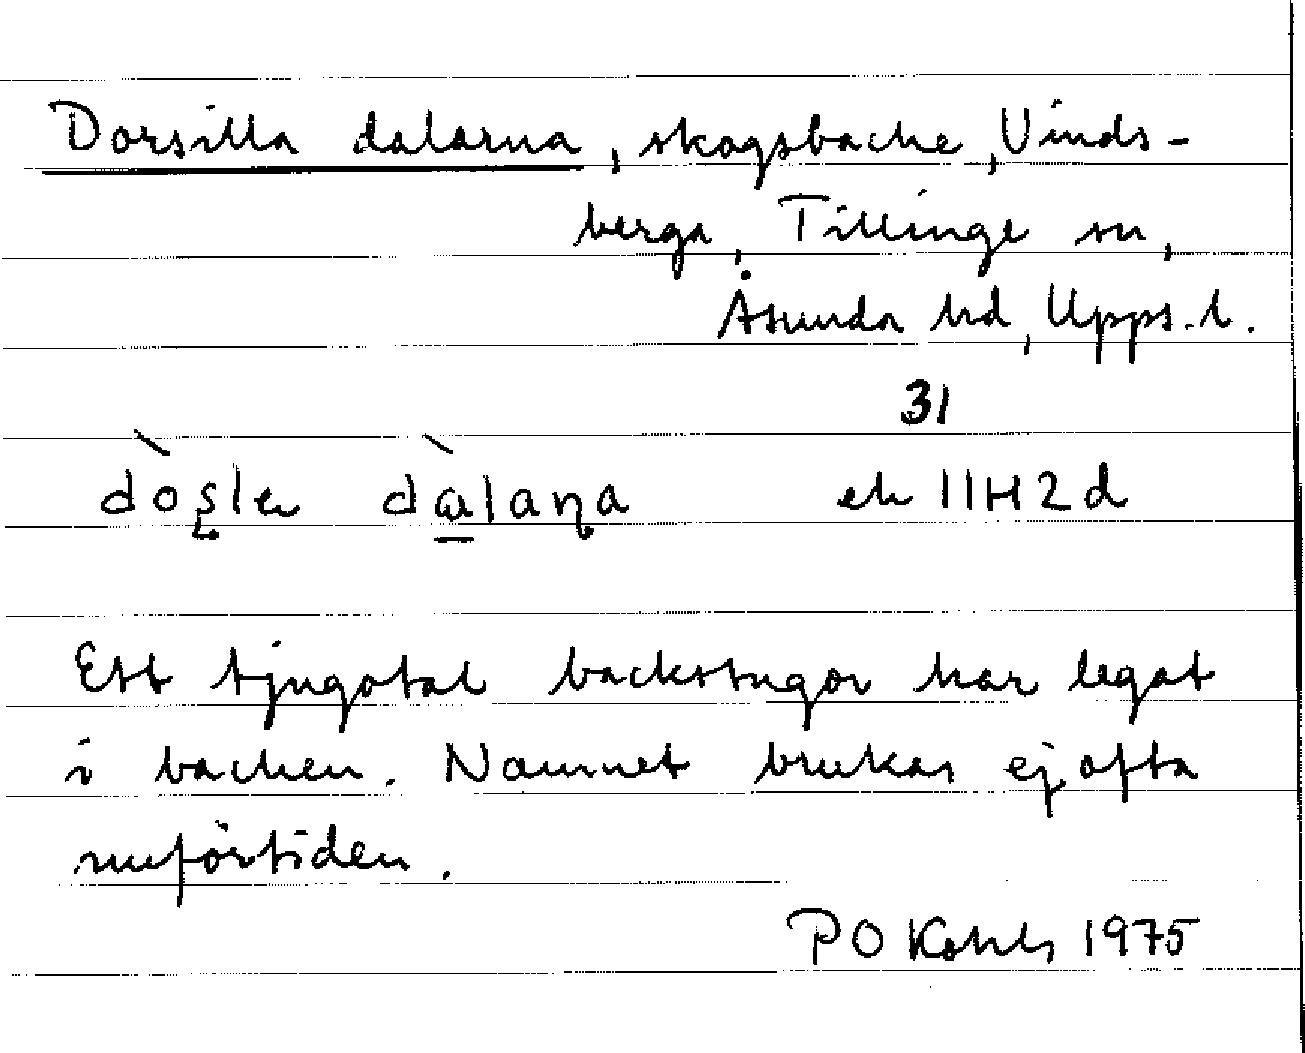 Dorsilla dalarna, skogsbacke, Vinds-
berga, Tillinge sn,
Åsunda hd, Upps. l.
31
dòs̨lα dàlaņa ek 11H2d
Ett tjugotal backstugor har legat
i backen. Namnet brukas ej ofta
nuförtiden.
P O Kohls 1975